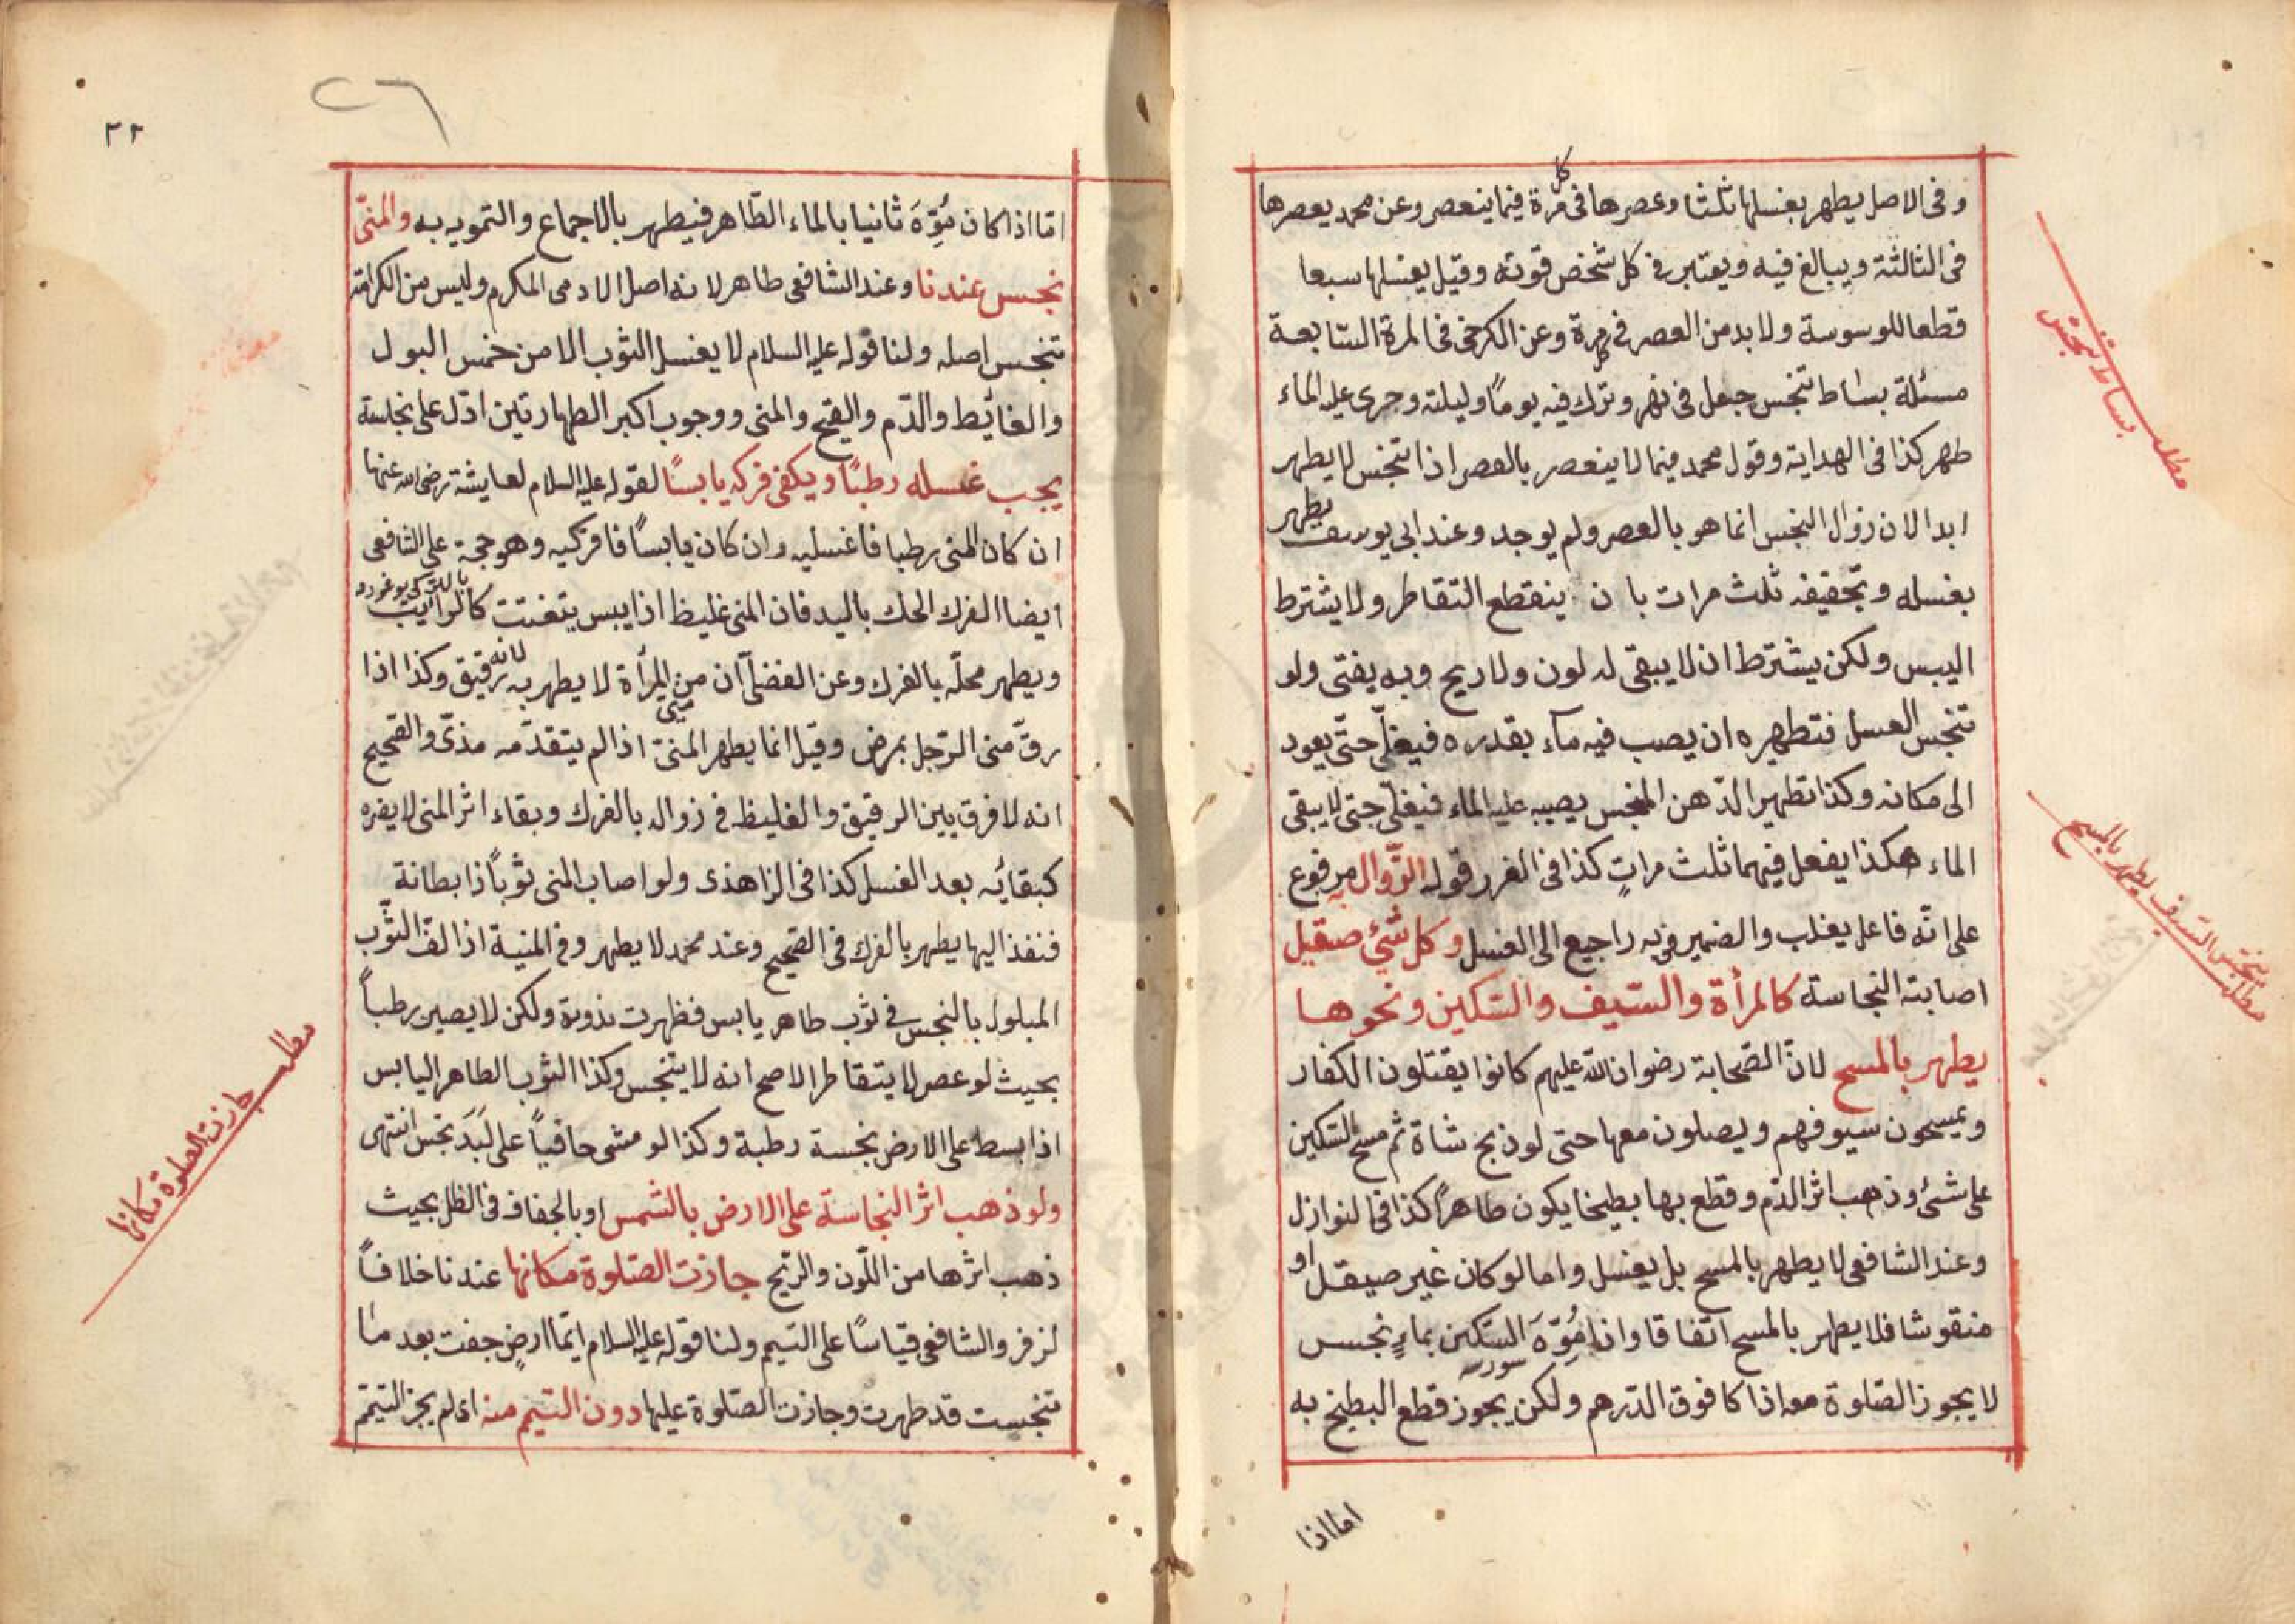 وفى الاصل يطهر بغسلها ثلثا وعصرها فى كل مرة فيما ينعصر وعن محمد يعصرها
فى الثالثة ويبالغ فيه ويعتبر فى كل شخص قوته وقيل يغسلها سبعا
قطعا للوسوسة ولا بد من العصر فى كل مرة وعن الكرخى فى المرة السّابعة
مسئلة بساط تنجس جعل فى نهر وترك فيه يومًا وليلته وجرى عليه الماء
طهر كذا فى الهداية وقول محمد فيما لا ينعصر بالعصر اذا تنجس لا يطهر
ابدا لان زوال النجس انما هو بالعصر ولم يوجد وعند ابى يوسف يطهر
بغسله وتجفيفه ثلث مرات بان ينقطع التقاطر ولا يشترط
اليبس ولكن يشترط ان لا يبقى له لون ولا ريح وبه يفتى ولو
تنجس العسل فتطهيره ان يصب فيه مآء بقدره فيغلّى حتّى يعود
الى مكانه وكذا تطهير الدّهن المنجس يصبه عليه الماء فيغلّى حتى لا يبقى
الماء هكذا يفعل فيهما ثلث مراتٍ كذا فى الغرر قوله الزّوال مرفوع
على انّه فاعل يغلب والضمير فى به راجع الى الغسل وكل شئ صقيل
اصابته النجاسة كالمرأة والسّيف والسّكين ونحوها
يطهر بالمسح لانّ الصّحابة رضوان الله عليهم كانوا يقتلون الكفار
ويمسحون سيوفهم ويصلون معها حتى لو ذبح شاة ثم مسح السّكين
على شئ وذهب اثر الدّم وقطع بها بطيخا يكون طاهرًا كذا فى النوازل
وعند الشافعى لا يطهر بالمسح بل يغسل واما لو كان غير صيقل او
منقوشا فلا يطهر بالمسح اتفاقا واذا مُوِّهَ السّكين بماءٍ نجس
لا يجوز الصّلوة معه اذا كا فوق الدّرهم ولكن يجوز قطع البطيخ به
اما اذا
مطلب بساط تنجّس
مطلب تنجّس السّيف يطهر بالمسح
٢٢
٢٦
امّا اذا كان مُوِّهَ ثانيا بالماء الطّاهر فيطهر بالاجماع والتمويه به والمنىّ
نجس عندنا وعند الشافعى طاهر لانه اصل الادمى المكرم وليس من الكرامة
تنجس اصله ولنا قوله عليه السلام لا يغسل الثوب الا من خمس البول
والغائط والدّم والقيح والمنى ووجوب اكبر الطهارتين ادّل على نجاسة
يجب غسله رطبًا ويكفى فركه يابسًا لقوله عليه السلام لعايشة رضى الله عنها
ان كان المنى رطبا فاغسليه وان كان يابسًا فافركيه وهو حجة على الشافعى
ايضا الفرك الحك باليد فان المنى غليظ اذا يبس يتفتت كالرايب
ويطهر محلّه بالفرك وعن الفضلىّ ان منى المرأة لا يطهر به لانه رقيق وكذا اذا
رقّ منى الرّجل بمرض وقيل انما يطهر المنىّ اذا لم يتقدّمه مذىّ والصّحيح
انه لا فرق بين الرقيق والغليظ فى زواله بالفرك وبقاء اثر المنى لا يضره
كبقائه بعد الغسل كذا فى الزاهدى ولو اصاب المنى ثوبًا ذا بطانة
فنفذ اليها يطهر بالفرك فى الصّحيح وعند محمد لا يطهر وفى المنية اذا لفّ الثّوب
المبلول بالنجس فى ثوب طاهر يابس فظهرت ندوته ولكن لا يصير رطباً
بحيث لو عصر لا يتقاطر الاصح انه لا يتنجس وكذا الثوب الطاهر اليابس
اذا بسط على الارض نجسة رطبة وكذا لو مشى حافياً على لَبَدَ نجس انتهى
ولو ذهب اثر النجاسة على الارض بالشّمس او بالجفاف فى الظل بحيث
ذهب اثرها من اللّون والرّيح جازت الصّلوة مكانها عندنا خلافاً
لزفر والشافعى قياسًا على التيمم ولنا قوله عليه السلام ايّما ارض جفت بعد ما
تنجست قد طهرت وجازت الصّلوة عليها دون التيمم منه اى لم يجز التيمّم
مطلب جازت الصلوة مكانها